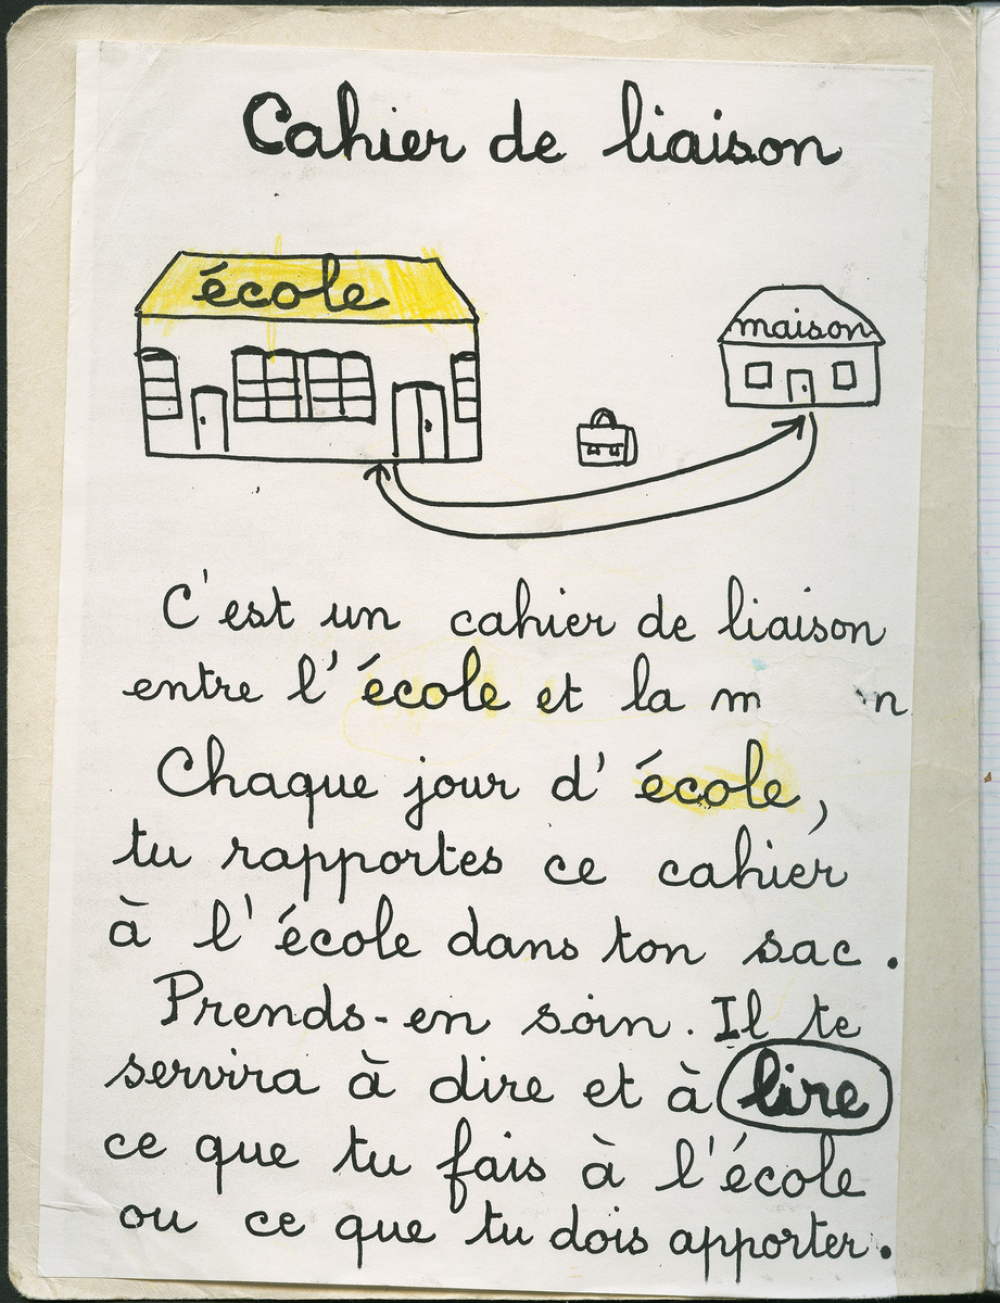 Cahier de liaison
école
maison
C'est un cahier de liaison
entre l'école et la m n
Chaque jour d'école,
tu rapportes ce cahier
à l'école dans ton sac.
Prends-en soin. Il te
servira à dire et à lire
ce que tu fais à l'école
ou ce que tu dois apporter.